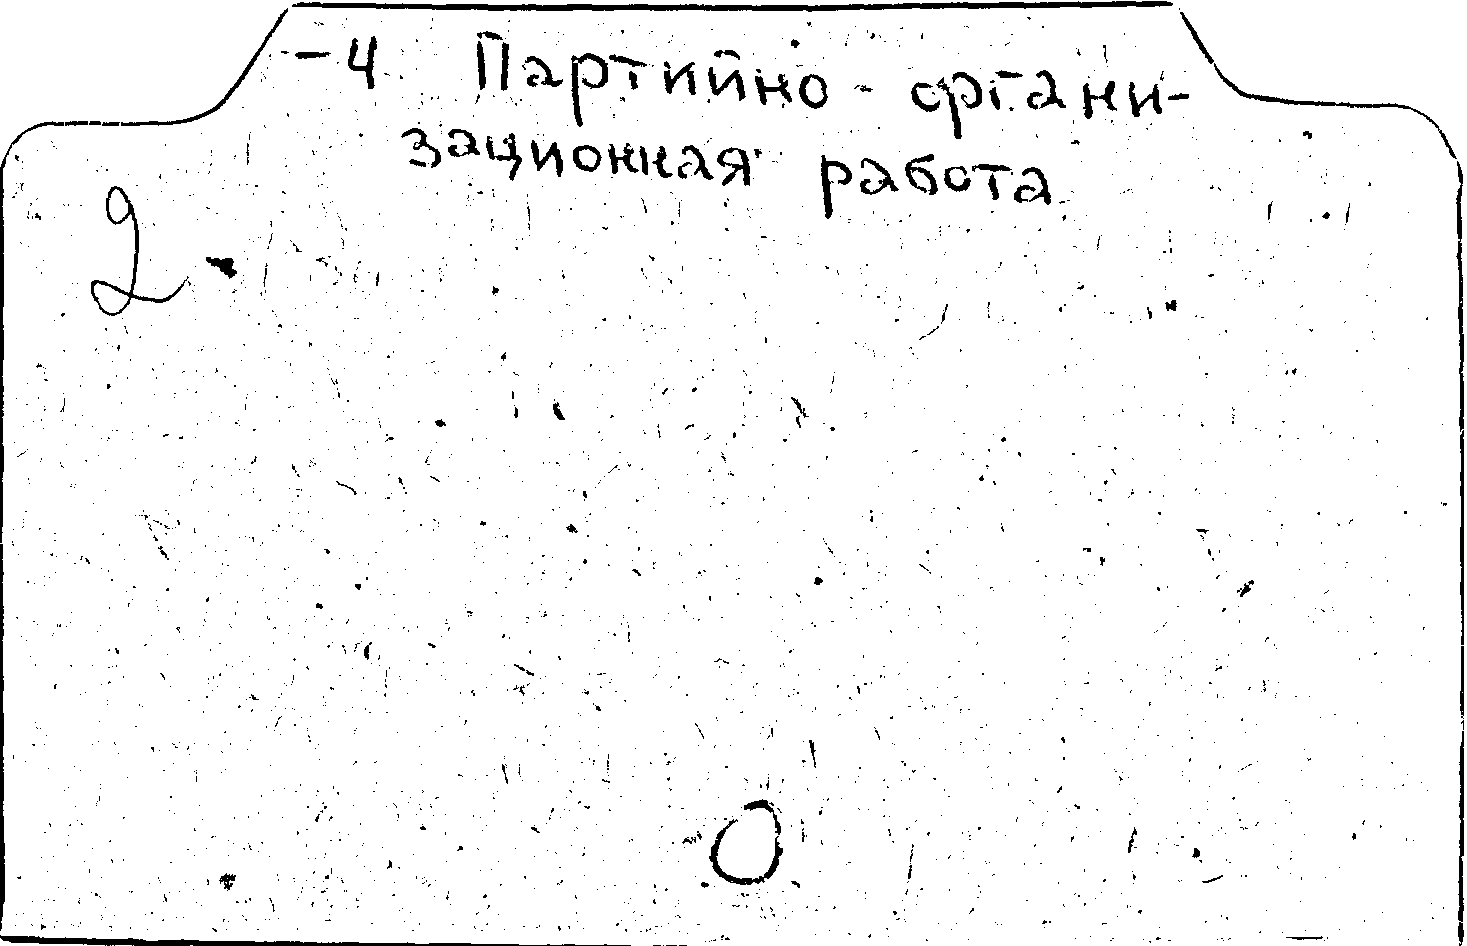 -4 Партийно-органи-
зационная работа
2